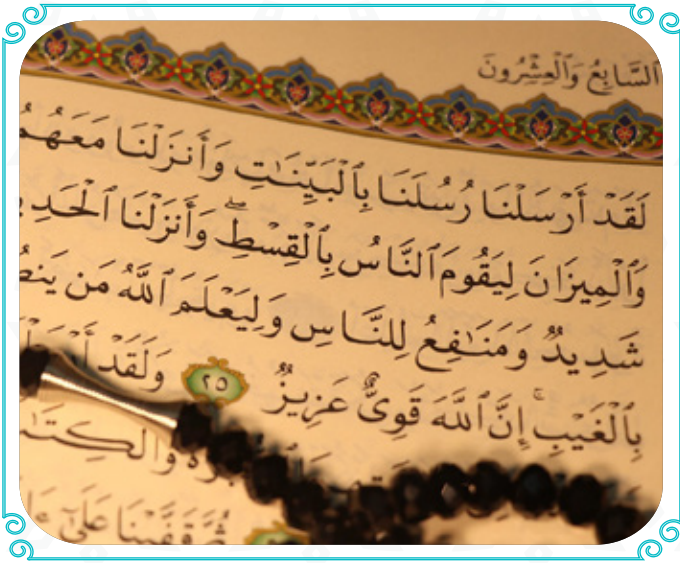 السَّابِعُ وَالْعِشْرُونَ
لَقَدْ أَرْسَلْنَا رُسُلَنَا بِٱلْبَيِّنَـٰتِ وَأَنزَلْنَا مَعَهُمُ
وَٱلْمِيزَانَ لِيَقُومَ ٱلنَّاسُ بِٱلْقِسْطِۖ وَأَنزَلْنَا ٱلْحَدِي
شَدِيدٌ وَمَنَـٰفِعُ لِلنَّاسِ وَلِيَعْلَمَ ٱللَّهُ مَن يَنصُ
بِٱلْغَيْبِۚ إِنَّ ٱللَّهَ قَوِىٌّ عَزِيزٌ ٢٥ وَلَقَدْ
وَٱلْكِتَـٰ
ثُمَّ قَفَّيْنَا عَلَىٰٓ